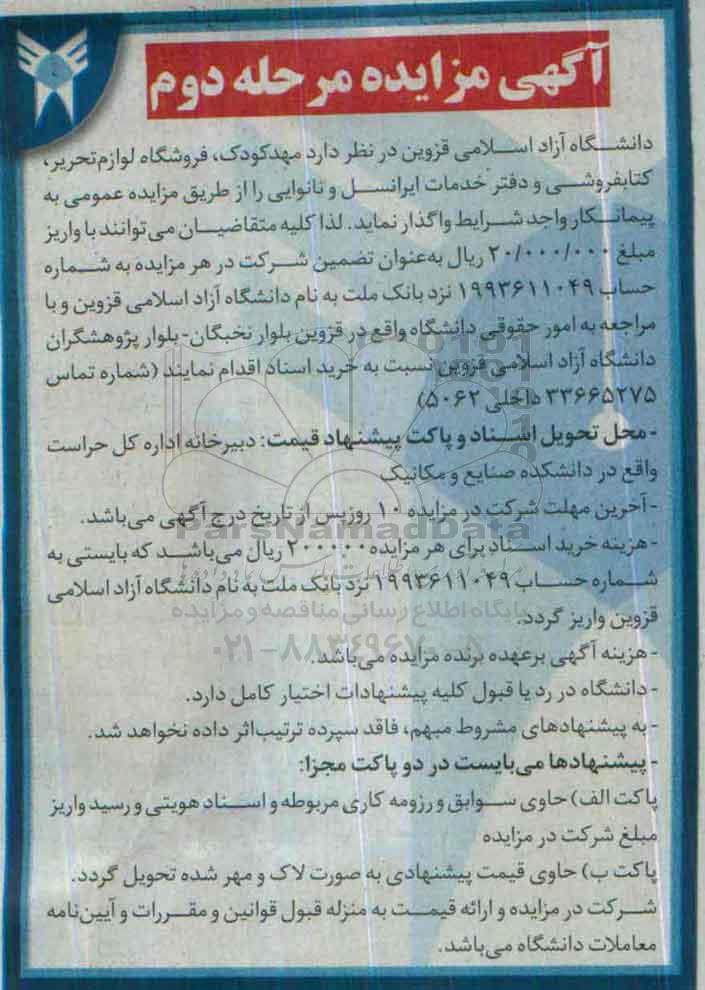 آگهی مزایده مرحله دوم
دانشگاه آزاد اسلامی قزوین در نظر دارد مهدکودک، فروشگاه لوازم‌تحریر،
کتابفروشی و دفتر خدمات ایرانسل و نانوایی را از طریق مزایده عمومی به
پیمانکار واجد شرایط واگذار نماید. لذا کلیه متقاضیان می‌توانند با واریز
مبلغ ۲۰/۰۰۰/۰۰۰ ریال به‌عنوان تضمین شرکت در هر مزایده به شماره
حساب ۱۹۹۳۶۱۱۰۴۹ نزد بانک ملت به نام دانشگاه آزاد اسلامی قزوین و با
مراجعه به امور حقوقی دانشگاه واقع در قزوین بلوار نخبگان- بلوار پژوهشگران
دانشگاه آزاد اسلامی قزوین نسبت به خرید اسناد اقدام نمایند (شماره تماس
۳۳۶۶۵۲۷۵ داخلی ۵۰۶۲)
- محل تحویل اسناد و پاکت پیشنهاد قیمت: دبیرخانه اداره کل حراست
واقع در دانشکده صنایع و مکانیک
- آخرین مهلت شرکت در مزایده ۱۰ روز پس از تاریخ درج آگهی می‌باشد.
ParsNamadData
- هزینه خرید اسناد برای هر مزایده ۲۰۰۰۰۰ ریال می‌باشد که بایستی به
شماره حساب ۱۹۹۳۶۱۱۰۴۹ نزد بانک ملت به نام دانشگاه آزاد اسلامی
پایگاه اطلاع رسانی مناقصه و مزایده
قزوین واریز گردد.
۰۲۱-۸۸۳۴۹۶۷۰
- هزینه آگهی برعهده برنده مزایده می‌باشد.
- دانشگاه در رد یا قبول کلیه پیشنهادات اختیار کامل دارد.
- به پیشنهادهای مشروط مبهم، فاقد سپرده ترتیب‌اثر داده نخواهد شد.
- پیشنهادها می‌بایست در دو پاکت مجزا:
پاکت الف) حاوی سوابق و رزومه کاری مربوطه و اسناد هویتی و رسید واریز
مبلغ شرکت در مزایده
پاکت ب) حاوی قیمت پیشنهادی به صورت لاک و مهر شده تحویل گردد.
شرکت در مزایده و ارائه قیمت به منزله قبول قوانین و مقررات و آیین‌نامه
معاملات دانشگاه می‌باشد.